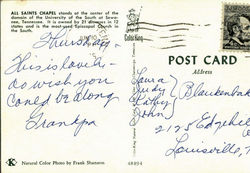 ALL SAINTS CHAPEL stands at the center of the
domain of the University of the South at Sewa-
nee, Tennessee. It is owned by 21 dioceses in 12
states and is the most used Episcopal Church in
the South.
Thursday-
This is lovely-
do wish you
could be along
Grandpa
POST CARD
Address
Laura
Judy
Cathy
John
Blankenbak
2125 Edgehill
Louisville,
K
Natural Color Photo by Frank Shannon
48894